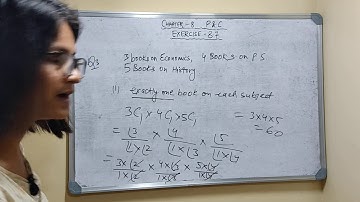 CHAPTER-8 P&C
EXERCISE-8.7
3 books on Economics, 4 Books on P S
5 Books on History
(i) Exactly one book on each subject
3C₁ × 4C₁ × 5C₁ = 3 × 4 × 5
= |3 / |1 × |2 × |4 / |1 × |3 × |5 / |1 × |4 = 60
= 3 × |2 / 1 × |2 × 4 × |3 / 1 × |3 × 5 × |4 / 1 × |4